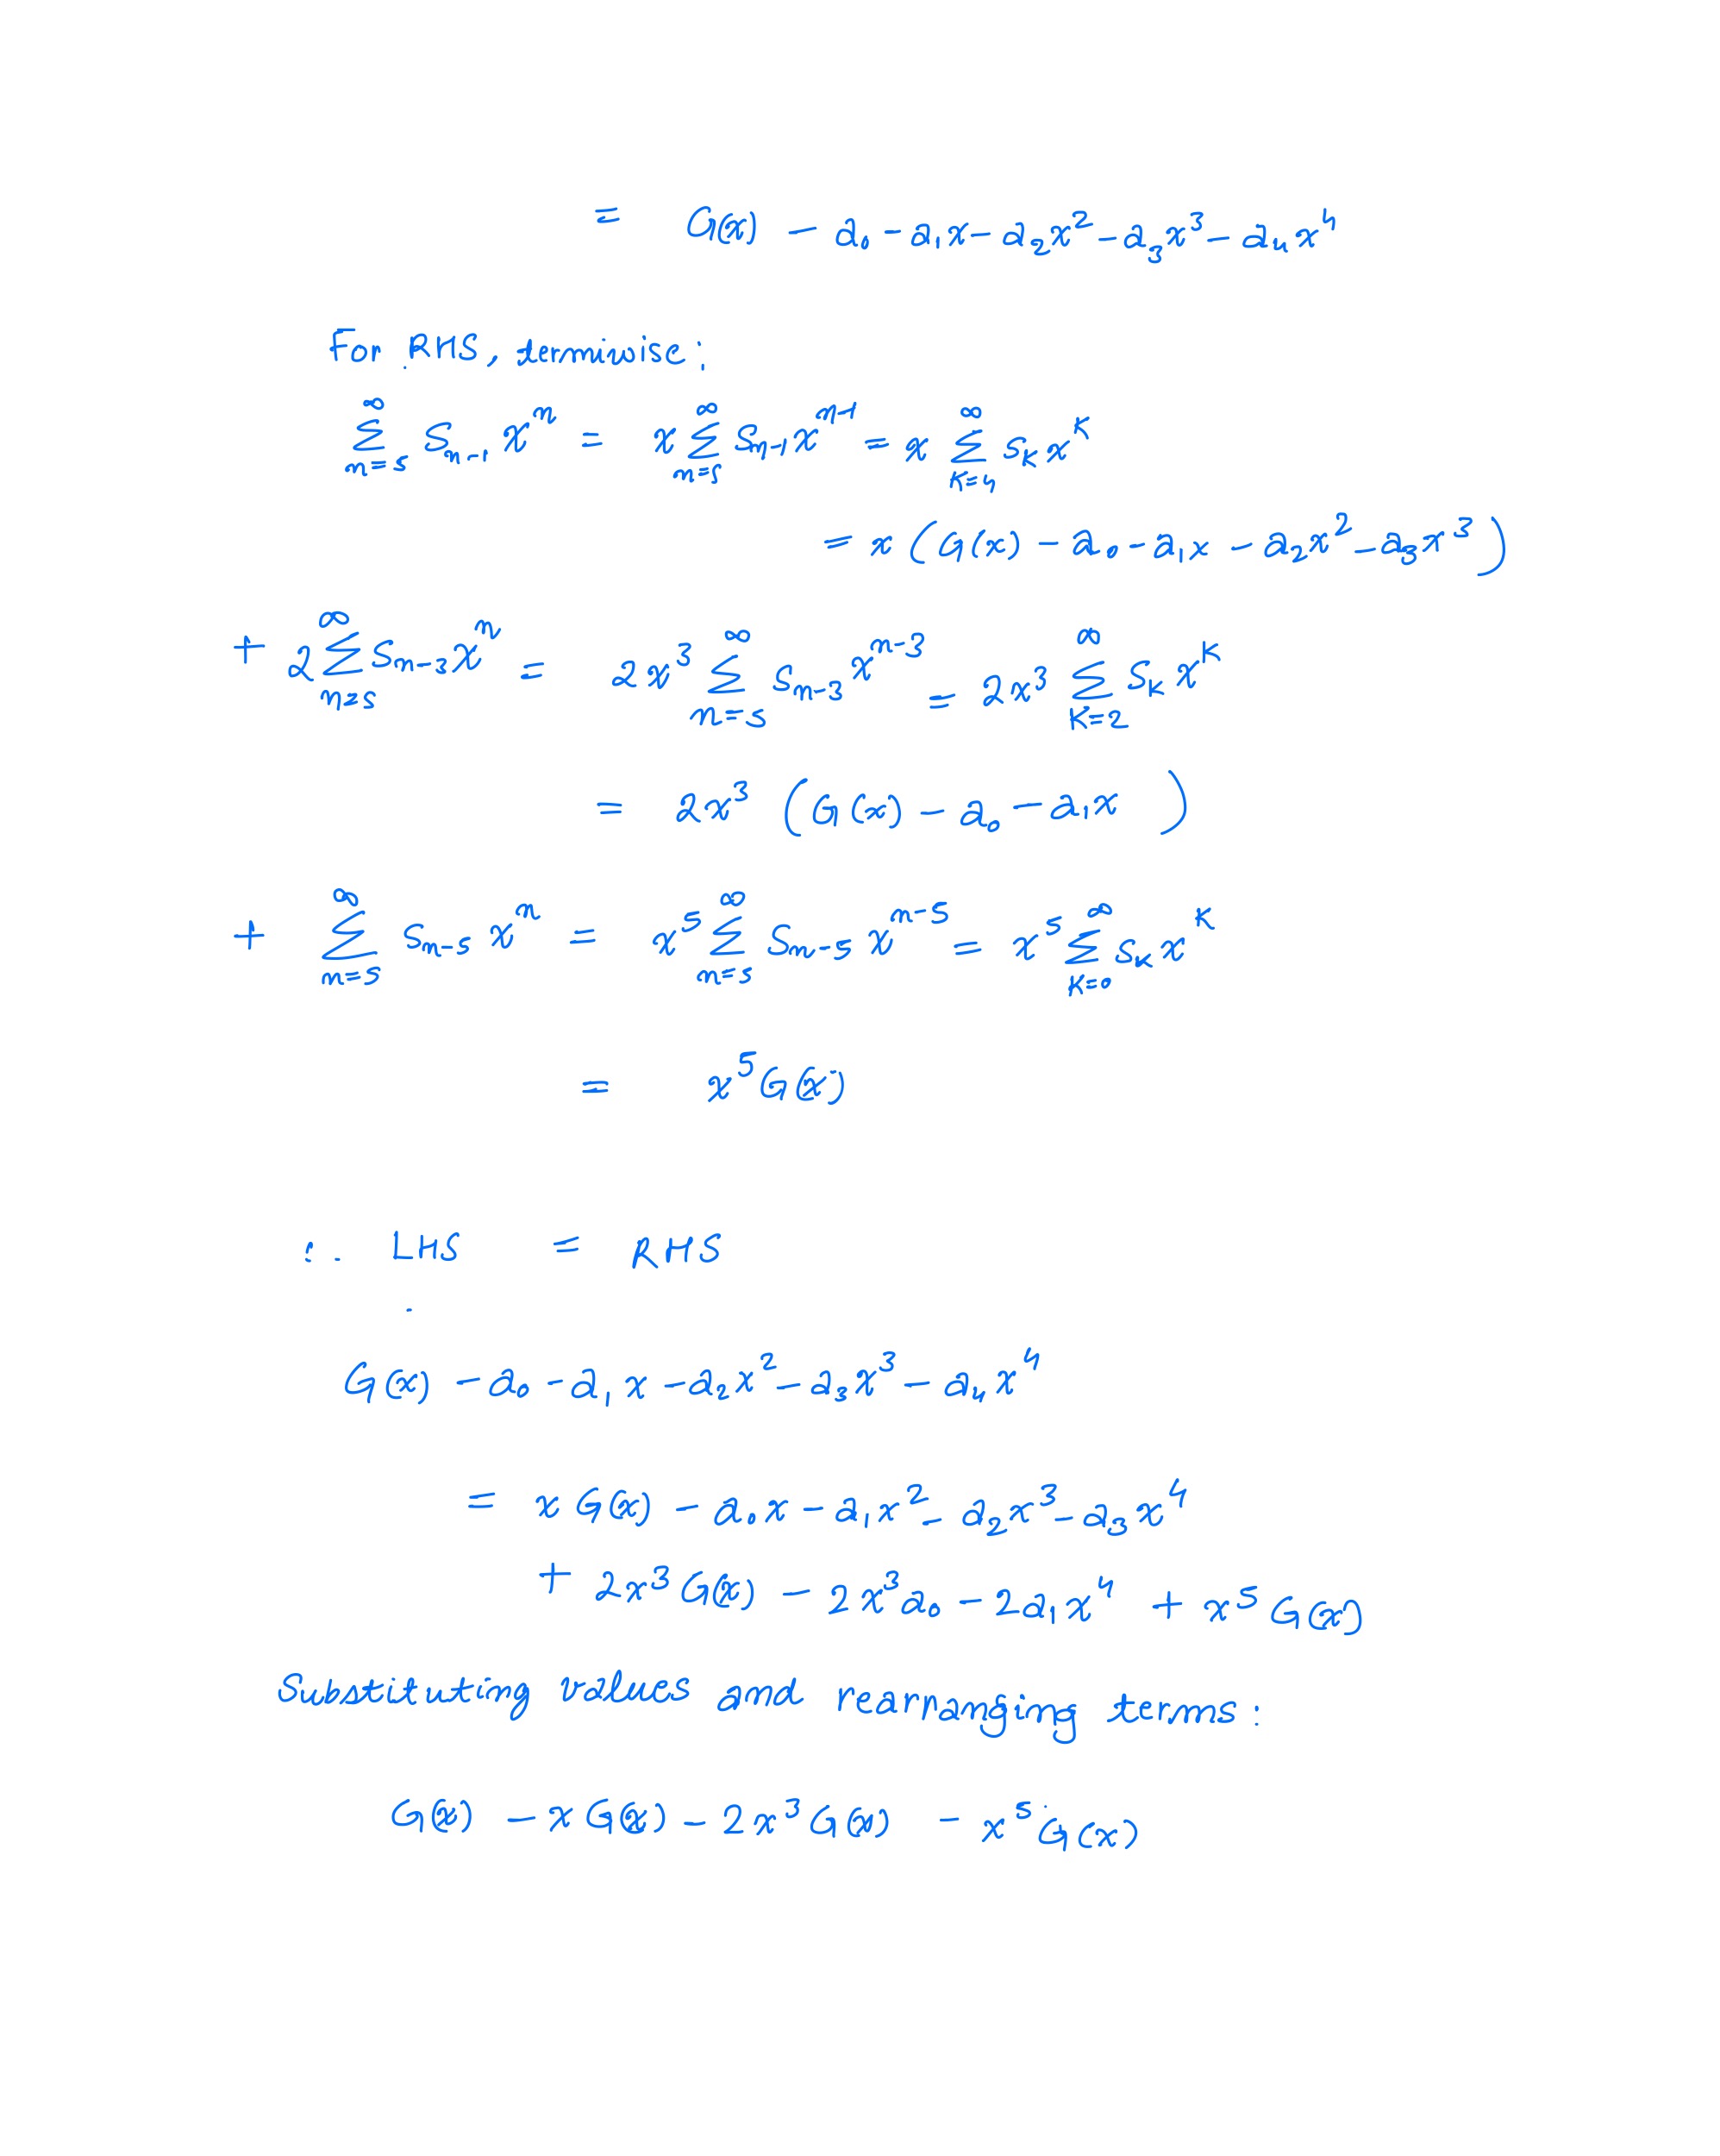 = G(x) - a₀ - a₁x - a₂x² - a₃x³ - a₄x⁴
For RHS, termwise:
∑_{n=5}^{∞} S_{n-1} x^n = x ∑_{n=5}^{∞} S_{n-1} x^{n-1} = x ∑_{K=4}^{∞} S_K x^K
= x (G(x) - a₀ - a₁x - a₂x² - a₃x³)
+ 2 ∑_{n=5}^{∞} S_{n-3} x^n = 2x³ ∑_{n=5}^{∞} S_{n-3} x^{n-3} = 2x³ ∑_{K=2}^{∞} S_K x^K
= 2x³ (G(x) - a₀ - a₁x )
+ ∑_{n=5}^{∞} S_{n-5} x^n = x⁵ ∑_{n=5}^{∞} S_{n-5} x^{n-5} = x⁵ ∑_{K=0}^{∞} S_K x^K
= x⁵ G(x)
∴ LHS = RHS
G(x) - a₀ - a₁x - a₂x² - a₃x³ - a₄x⁴
= x G(x) - a₀x - a₁x² - a₂x³ - a₃x⁴
+ 2x³ G(x) - 2x³a₀ - 2a₁x⁴ + x⁵ G(x)
Substituting values and rearranging terms:
G(x) - x G(x) - 2x³ G(x) - x⁵ G(x)